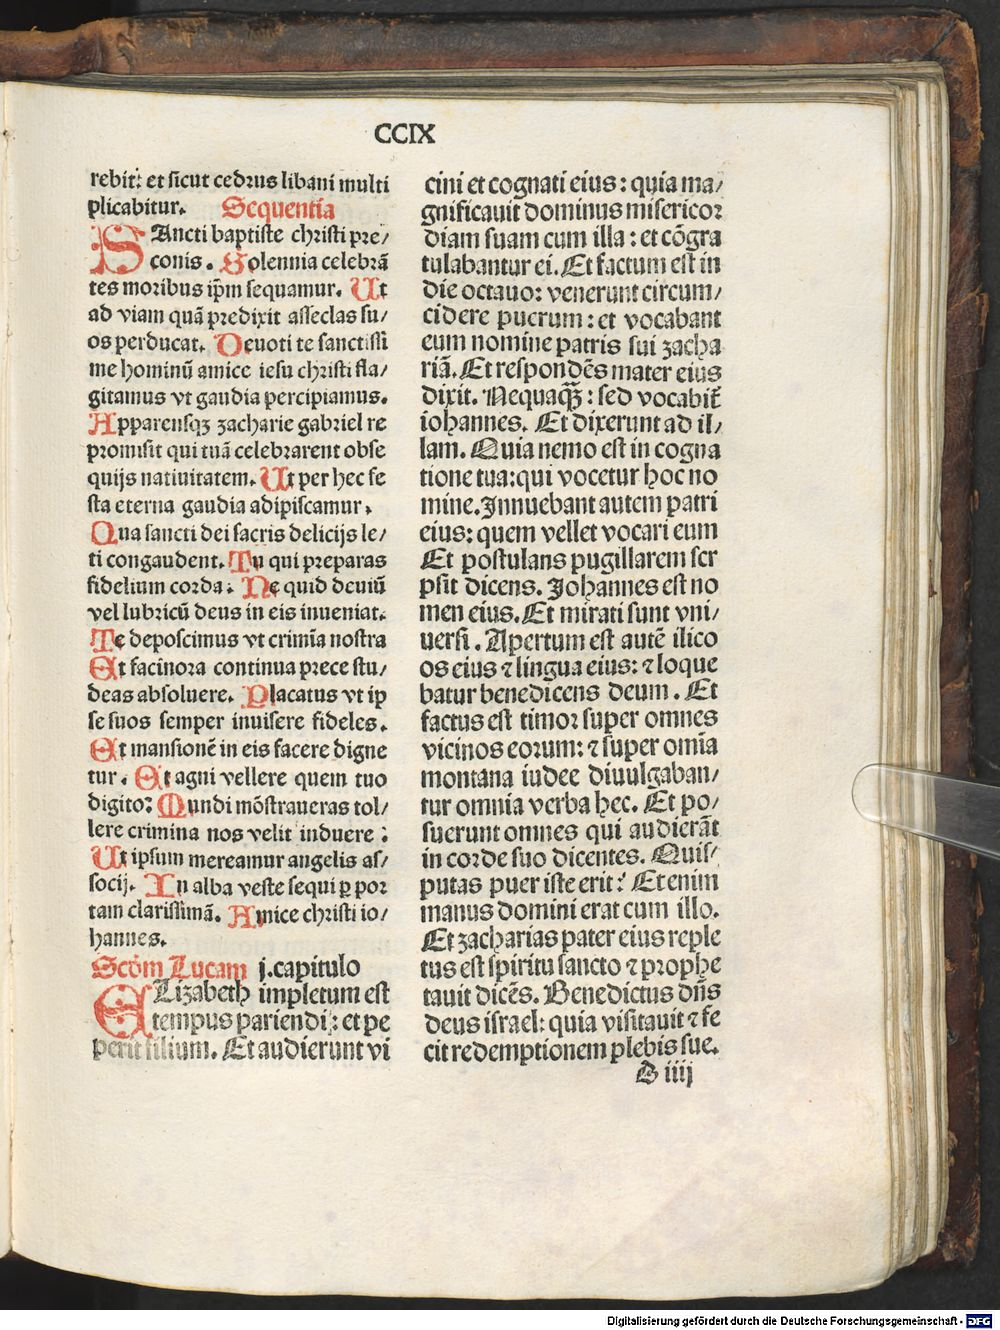 CCIX
rebit: et sicut cedrus libani multi
plicabitur. Sequentia
SAncti baptiste christi pre/
conis. Solennia celebrā
tes moribus ip̄m sequamur. Ut
ad viam quā predixit asseclas su/
os perducat. Deuoti te sanctissi
me hominū amice iesu christi fla/
gitamus vt gaudia percipiamus.
Apparensqꝫ zacharie gabriel re
promisit qui tuā celebrarent obse
quijs natiuitatem. Ut per hec fe
sta eterna gaudia adipiscamur.
Qua sancti dei sacris delicijs le/
ti congaudent. Tu qui preparas
fidelium corda. Ne quid deuiū
vel lubricū deus in eis inueniat.
Te deposcimus vt crimīa nostra
Et facinora continua prece stu/
deas absoluere. Placatus vt ip
se suos semper inuisere fideles.
Et mansionē in eis facere digne
tur. Et agni vellere quem tuo
digito: Mundi mōstraueras tol/
lere crimina nos velit induere:
Ut ipsum mereamur angelis as/
socij. In alba veste sequi ꝑ por
tam clarissimā. Amice christi io/
hannes.
Scd̄m Lucam j.capitulo
ELizabeth impletum est
tempus pariendi: et pe
perit filium. Et audierunt vi
cini et cognati eius: quia ma/
gnificauit dominus misericor
diam suam cum illa: et cōgra
tulabantur ei. Et factum est in
die octauo: venerunt circum/
cidere puerum: et vocabant
eum nomine patris sui zacha
riā. Et respondēs mater eius
dixit. Nequaqꝫ̄: sed vocabit̄
iohannes. Et dixerunt ad il/
lam. Quia nemo est in cogna
tione tua: qui vocetur hoc no
mine. Innuebant autem patri
eius: quem vellet vocari eum
Et postulans pugillarem scr
psit dicens. Johannes est no
men eius. Et mirati sunt vni/
uersi. Apertum est autē ilico
os eius ⁊ lingua eius: ⁊ loque
batur benedicens deum. Et
factus est timor super omnes
vicinos eorum: ⁊ super omīa
montana iudee diuulgaban/
tur omnia verba hec. Et po/
suerunt omnes qui audierāt
in corde suo dicentes. Quis/
putas puer iste erit? Etenim
manus domini erat cum illo.
Et zacharias pater eius reple
tus est spiritu sancto ⁊ prophe
tauit dicēs. Benedictus dn̄s
deus israel: quia visitauit ⁊ fe
cit redemptionem plebis sue.
D iiij
Digitalisierung gefördert durch die Deutsche Forschungsgemeinschaft - DFG